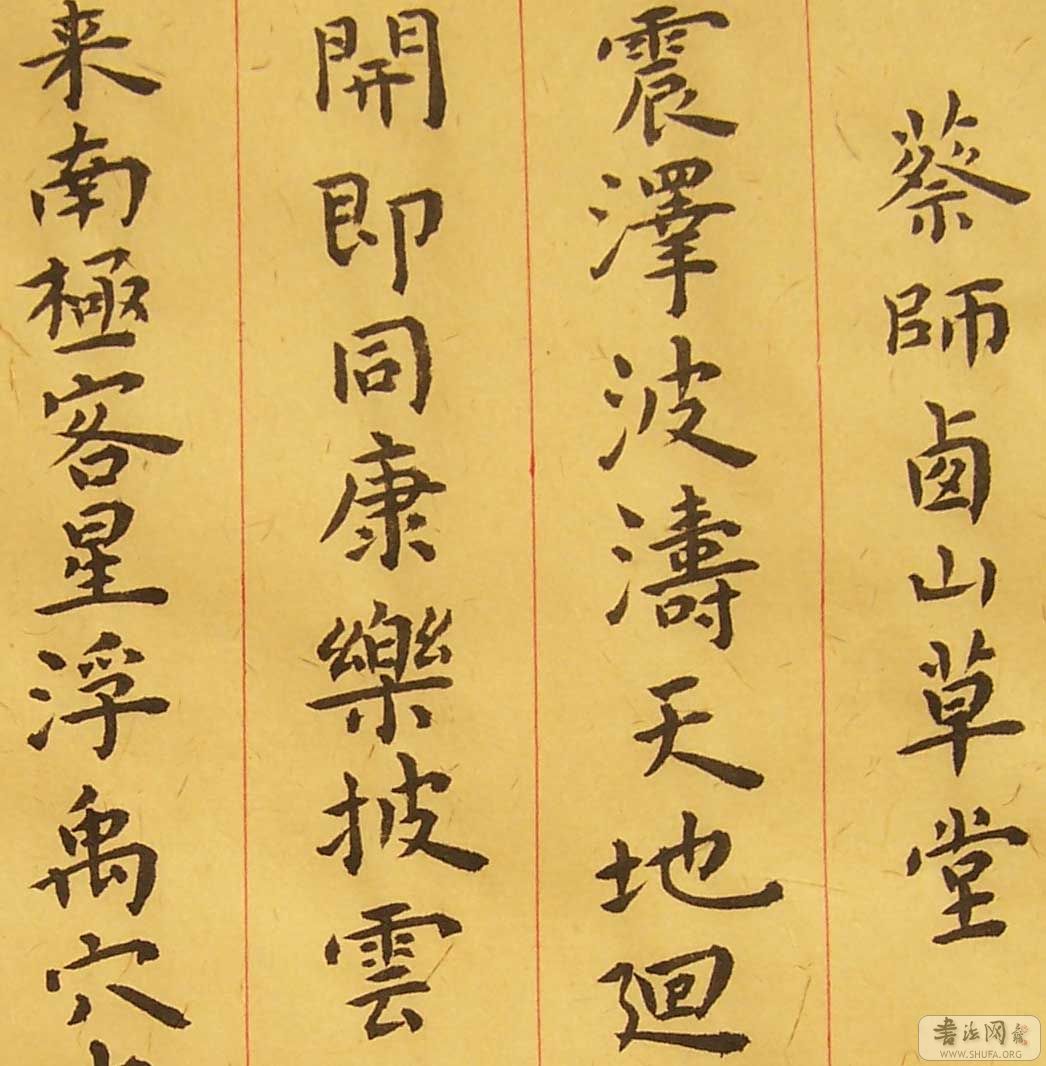 蔡師鹵山草堂
震澤波濤天地廻
開即同康樂披雲
来南極客星浮禹穴
書法网
WWW.SHUFA.ORG